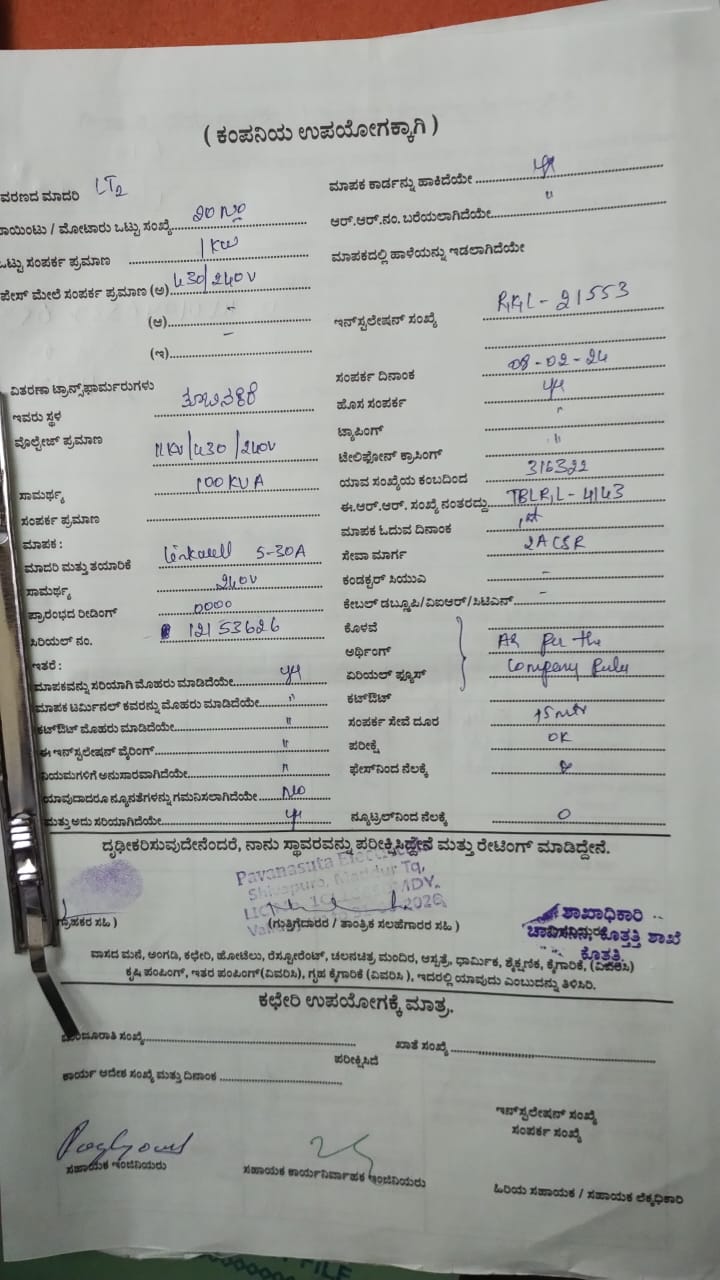 ( ಕಂಪನಿಯ ಉಪಯೋಗಕ್ಕಾಗಿ )
ವರಣದ ಮಾದರಿ LT2
ಾಯಿಂಟು / ಮೋಟಾರು ಒಟ್ಟು ಸಂಖ್ಯೆ
ಒಟ್ಟು ಸಂಪರ್ಕ ಪ್ರಮಾಣ 1 KW
ಪೇಸ್ ಮೇಲೆ ಸಂಪರ್ಕ ಪ್ರಮಾಣ (ಅ) 430/240V
(ಆ) -
(ಇ) -
ವಿತರಣಾ ಟ್ರಾನ್ಸ್‌ಫಾರ್ಮರುಗಳು
ಇವರು ಸ್ಥಳ
ವೊಲ್ಟೇಜ್ ಪ್ರಮಾಣ 11KV/430/240V
ಸಾಮರ್ಥ್ಯ 100 KVA
ಸಂಪರ್ಕ ಪ್ರಮಾಣ
ಮಾಪಕ :
ಮಾದರಿ ಮತ್ತು ತಯಾರಿಕೆ 5-30A
ಸಾಮರ್ಥ್ಯ 240V
ಪ್ರಾರಂಭದ ರೀಡಿಂಗ್ 0000
ಸಿರಿಯಲ್ ನಂ. 12153626
ಇತರೆ :
ಮಾಪಕವನ್ನು ಸರಿಯಾಗಿ ಮೊಹರು ಮಾಡಿದೆಯೇ
ಮಾಪಕ ಟರ್ಮಿನಲ್ ಕವರನ್ನು ಮೊಹರು ಮಾಡಿದೆಯೇ "
ಕಟ್‌ಔಟ್ ಮೊಹರು ಮಾಡಿದೆಯೇ "
ಈ ಇನ್‌ಸ್ಟಲೇಷನ್ ವೈರಿಂಗ್ "
ನಿಯಮಗಳಿಗೆ ಅನುಸಾರವಾಗಿದೆಯೇ "
ಯಾವುದಾದರೂ ನ್ಯೂನತೆಗಳನ್ನು ಗಮನಿಸಲಾಗಿದೆಯೇ NO
ಮತ್ತು ಅದು ಸರಿಯಾಗಿದೆಯೇ
ಮಾಪಕ ಕಾರ್ಡನ್ನು ಹಾಕಿದೆಯೇ
ಆರ್.ಆರ್.ನಂ. ಬರೆಯಲಾಗಿದೆಯೇ "
ಮಾಪಕದಲ್ಲಿ ಹಾಳೆಯನ್ನು ಇಡಲಾಗಿದೆಯೇ
ಇನ್‌ಸ್ಟಲೇಷನ್ ಸಂಖ್ಯೆ - 21553
ಸಂಪರ್ಕ ದಿನಾಂಕ 08-02-24
ಹೊಸ ಸಂಪರ್ಕ
ಟ್ಯಾಪಿಂಗ್ "
ಟೆಲಿಫೋನ್ ಕ್ರಾಸಿಂಗ್ "
ಯಾವ ಸಂಖ್ಯೆಯ ಕಂಬದಿಂದ 316322
ಈ.ಆರ್.ಆರ್. ಸಂಖ್ಯೆ ನಂತರದ್ದು - 4143
ಮಾಪಕ ಓದುವ ದಿನಾಂಕ 1st
ಸೇವಾ ಮಾರ್ಗ 2 ACSR
ಕಂಡಕ್ಟರ್ ಸಿಯುಎ -
ಕೇಬಲ್ ಡಬ್ಲ್ಯೂಪಿ/ವಿಐಆರ್/ಸಿಟಿಎಸ್ -
ಕೊಳವೆ
ಅರ್ಥಿಂಗ್ As per the
ಏರಿಯಲ್ ಫ್ಯೂಸ್ Company Rules
ಕಟ್‌ಔಟ್
ಸಂಪರ್ಕ ಸೇವೆ ದೂರ 15 mtr
ಪರೀಕ್ಷೆ OK
ಫೇಸ್‌ನಿಂದ ನೆಲಕ್ಕೆ
ನ್ಯೂಟ್ರಲ್‌ನಿಂದ ನೆಲಕ್ಕೆ 0
ದೃಢೀಕರಿಸುವುದೇನೆಂದರೆ, ನಾನು ಸ್ಥಾವರವನ್ನು ಪರೀಕ್ಷಿಸಿದ್ದೇನೆ ಮತ್ತು ರೇಟಿಂಗ್ ಮಾಡಿದ್ದೇನೆ.
Pavanasuta
Shivapura, Maddur Tq,
MDY.
2026
ಗ್ರಾಹಕರ ಸಹಿ )
(ಗುತ್ತಿಗೆದಾರರ / ತಾಂತ್ರಿಕ ಸಲಹೆಗಾರರ ಸಹಿ )
ಶಾಖಾಧಿಕಾರಿ
ಚಾವಿಸನಿನಿ, ಕೊತ್ತತ್ತಿ ಶಾಖೆ
ಕೊತ್ತತ್ತಿ.
ವಾಸದ ಮನೆ, ಅಂಗಡಿ, ಕಛೇರಿ, ಹೋಟೆಲು, ರೆಸ್ಟೋರೆಂಟ್, ಚಲನಚಿತ್ರ ಮಂದಿರ, ಆಸ್ಪತ್ರೆ, ಧಾರ್ಮಿಕ, ಶೈಕ್ಷಣಿಕ, ಕೈಗಾರಿಕೆ, (ವಿವರಿಸಿ)
ಕೃಷಿ ಪಂಪಿಂಗ್, ಇತರ ಪಂಪಿಂಗ್(ವಿವರಿಸಿ), ಗೃಹ ಕೈಗಾರಿಕೆ (ವಿವರಿಸಿ ), ಇದರಲ್ಲಿ ಯಾವುದು ಎಂಬುದನ್ನು ತಿಳಿಸಿರಿ.
ಕಛೇರಿ ಉಪಯೋಗಕ್ಕೆ ಮಾತ್ರ.
ಮಂಜೂರಾತಿ ಸಂಖ್ಯೆ
ಖಾತೆ ಸಂಖ್ಯೆ
ಪರೀಕ್ಷಿಸಿದೆ
ಕಾರ್ಯ ಆದೇಶ ಸಂಖ್ಯೆ ಮತ್ತು ದಿನಾಂಕ
ಇನ್‌ಸ್ಟಲೇಷನ್ ಸಂಖ್ಯೆ
ಸಂಪರ್ಕ ಸಂಖ್ಯೆ
ಸಹಾಯಕ ಇಂಜಿನಿಯರು
ಸಹಾಯಕ ಕಾರ್ಯನಿರ್ವಾಹಕ ಇಂಜಿನಿಯರು
ಹಿರಿಯ ಸಹಾಯಕ / ಸಹಾಯಕ ಲೆಕ್ಕಧಿಕಾರಿ
FILE